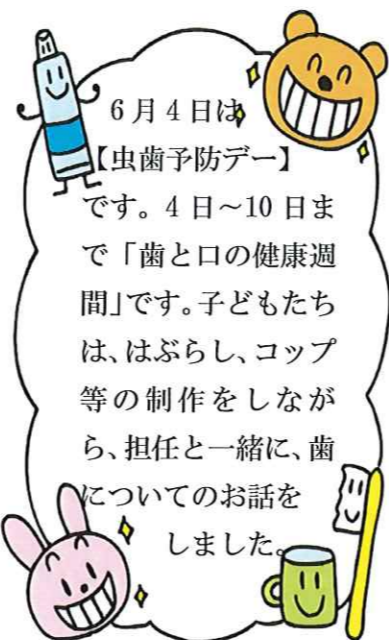 6月4日は
【虫歯予防デー】
です。4日～10日ま
で「歯と口の健康週
間」です。子どもたち
は、はぶらし、コップ
等の制作をしなが
ら、担任と一緒に、歯
についてのお話を
しました。